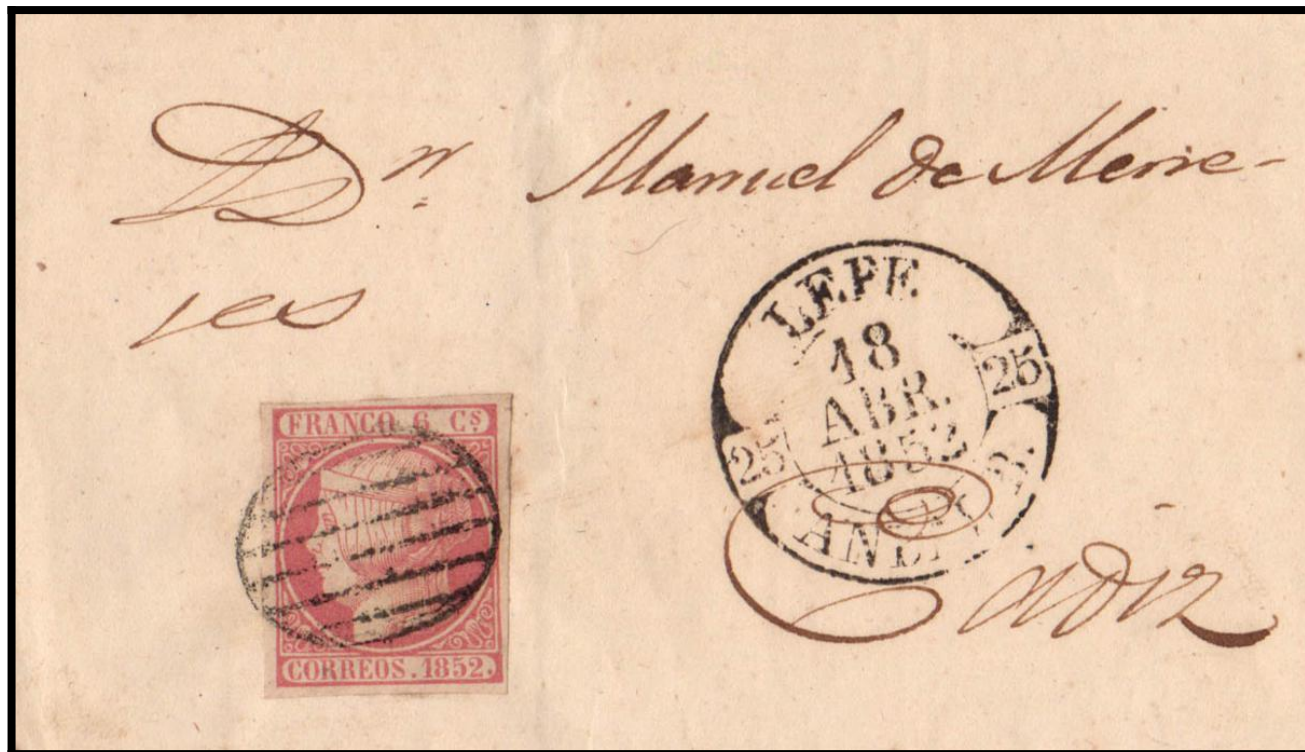 Dn. Manuel de Merre-
yes
LEPE
18
ABR.
1852
25
25
ANDAL. B.
FRANCO 6 Cs
CORREOS.1852.
Cadiz